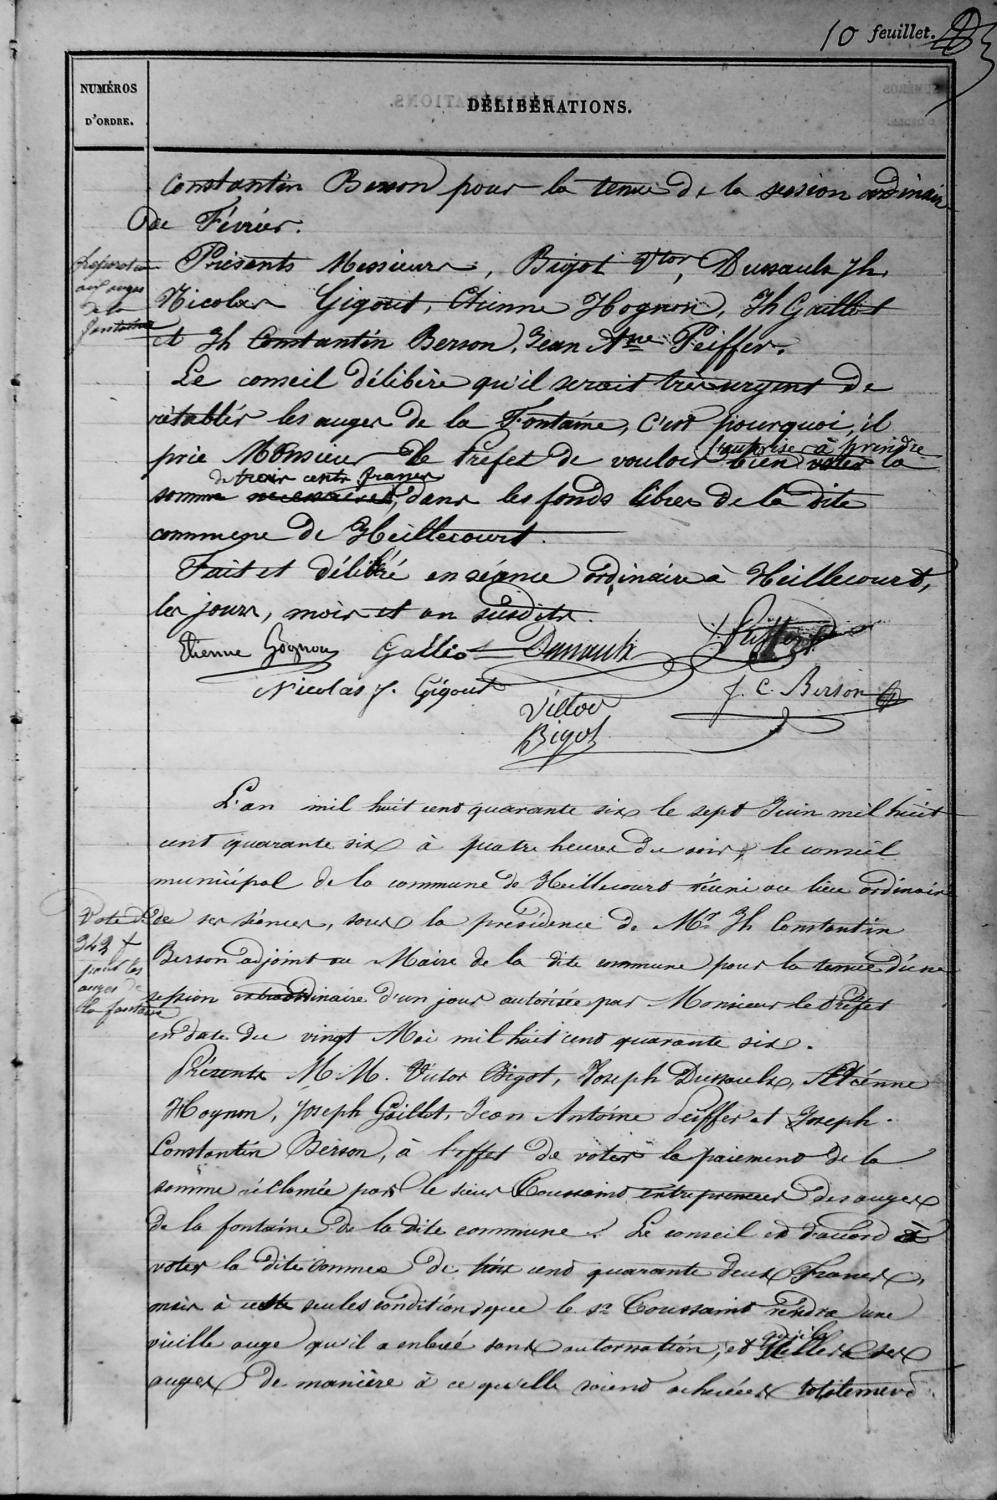 10 feuillet.
NUMÉROS
D'ORDRE.
DÉLIBÉRATIONS.
Constantin Berson pour la tenue de la session ordinaire
de Février.
Réparation
aux auges
de la
fontaine
Présents Messieurs, Bigot Vtor, Dussaulx Jh,
Nicolas Gigout, Etienne Hognon, Jh Gaillot
et Jh Constantin Berson, Jean Ane Peiffer.
Le conseil délibère qu'il serait très urgent de
rétablir les auges de la Fontaine, c'est pourquoi, il
prie Monsieur le Préfet de vouloir bien voter la
l'autoriser à prendre
somme necessaires, dans les fonds libres de la dite
de trois cents francs
commune de Heillecourt.
Fait et délibéré en séance ordinaire à Heillecourt,
les jours, mois et an susdits.
Etienne Hognon Gallot Dussaulx J. Peiffer
Nicolas J. Gigout J. C. Berson
Victor
Bigot
L'an mil huit cent quarante six le sept Juin mil huit
cent quarante six à quatre heures du soir, le conseil
municipal de la commune de Heillecourt réuni au lieu ordinaire
Vote de
342 f
pour les
auges de
la fontaine
de ses séances, sous la présidence de Mr Jh Constantin
Berson adjoint au Maire de la dite commune pour la tenue d'une
session extraordinaire d'un jour autorisée par Monsieur le Préfet
en date du vingt Mai mil huit cent quarante six.
Présents M.M. Victor Bigot, Joseph Dussaulx, Etienne
Hognon, Joseph Gaillot, Jean Antoine Peiffer et Joseph
Constantin Berson, à l'effet de voter le paiement de la
somme réclamée par le sieur Toussaint entrepreneur des auges
de la fontaine de la dite commune. Le conseil est d'accord à
voter la dite somme de trois cent quarante deux Francs,
mais à cette seules condition que le sr Toussaint rendra une
vieille auge qu'il a enlevé sans autorisation, et qu'il
auges de manière à ce qu'elle soiend achevées totalement.